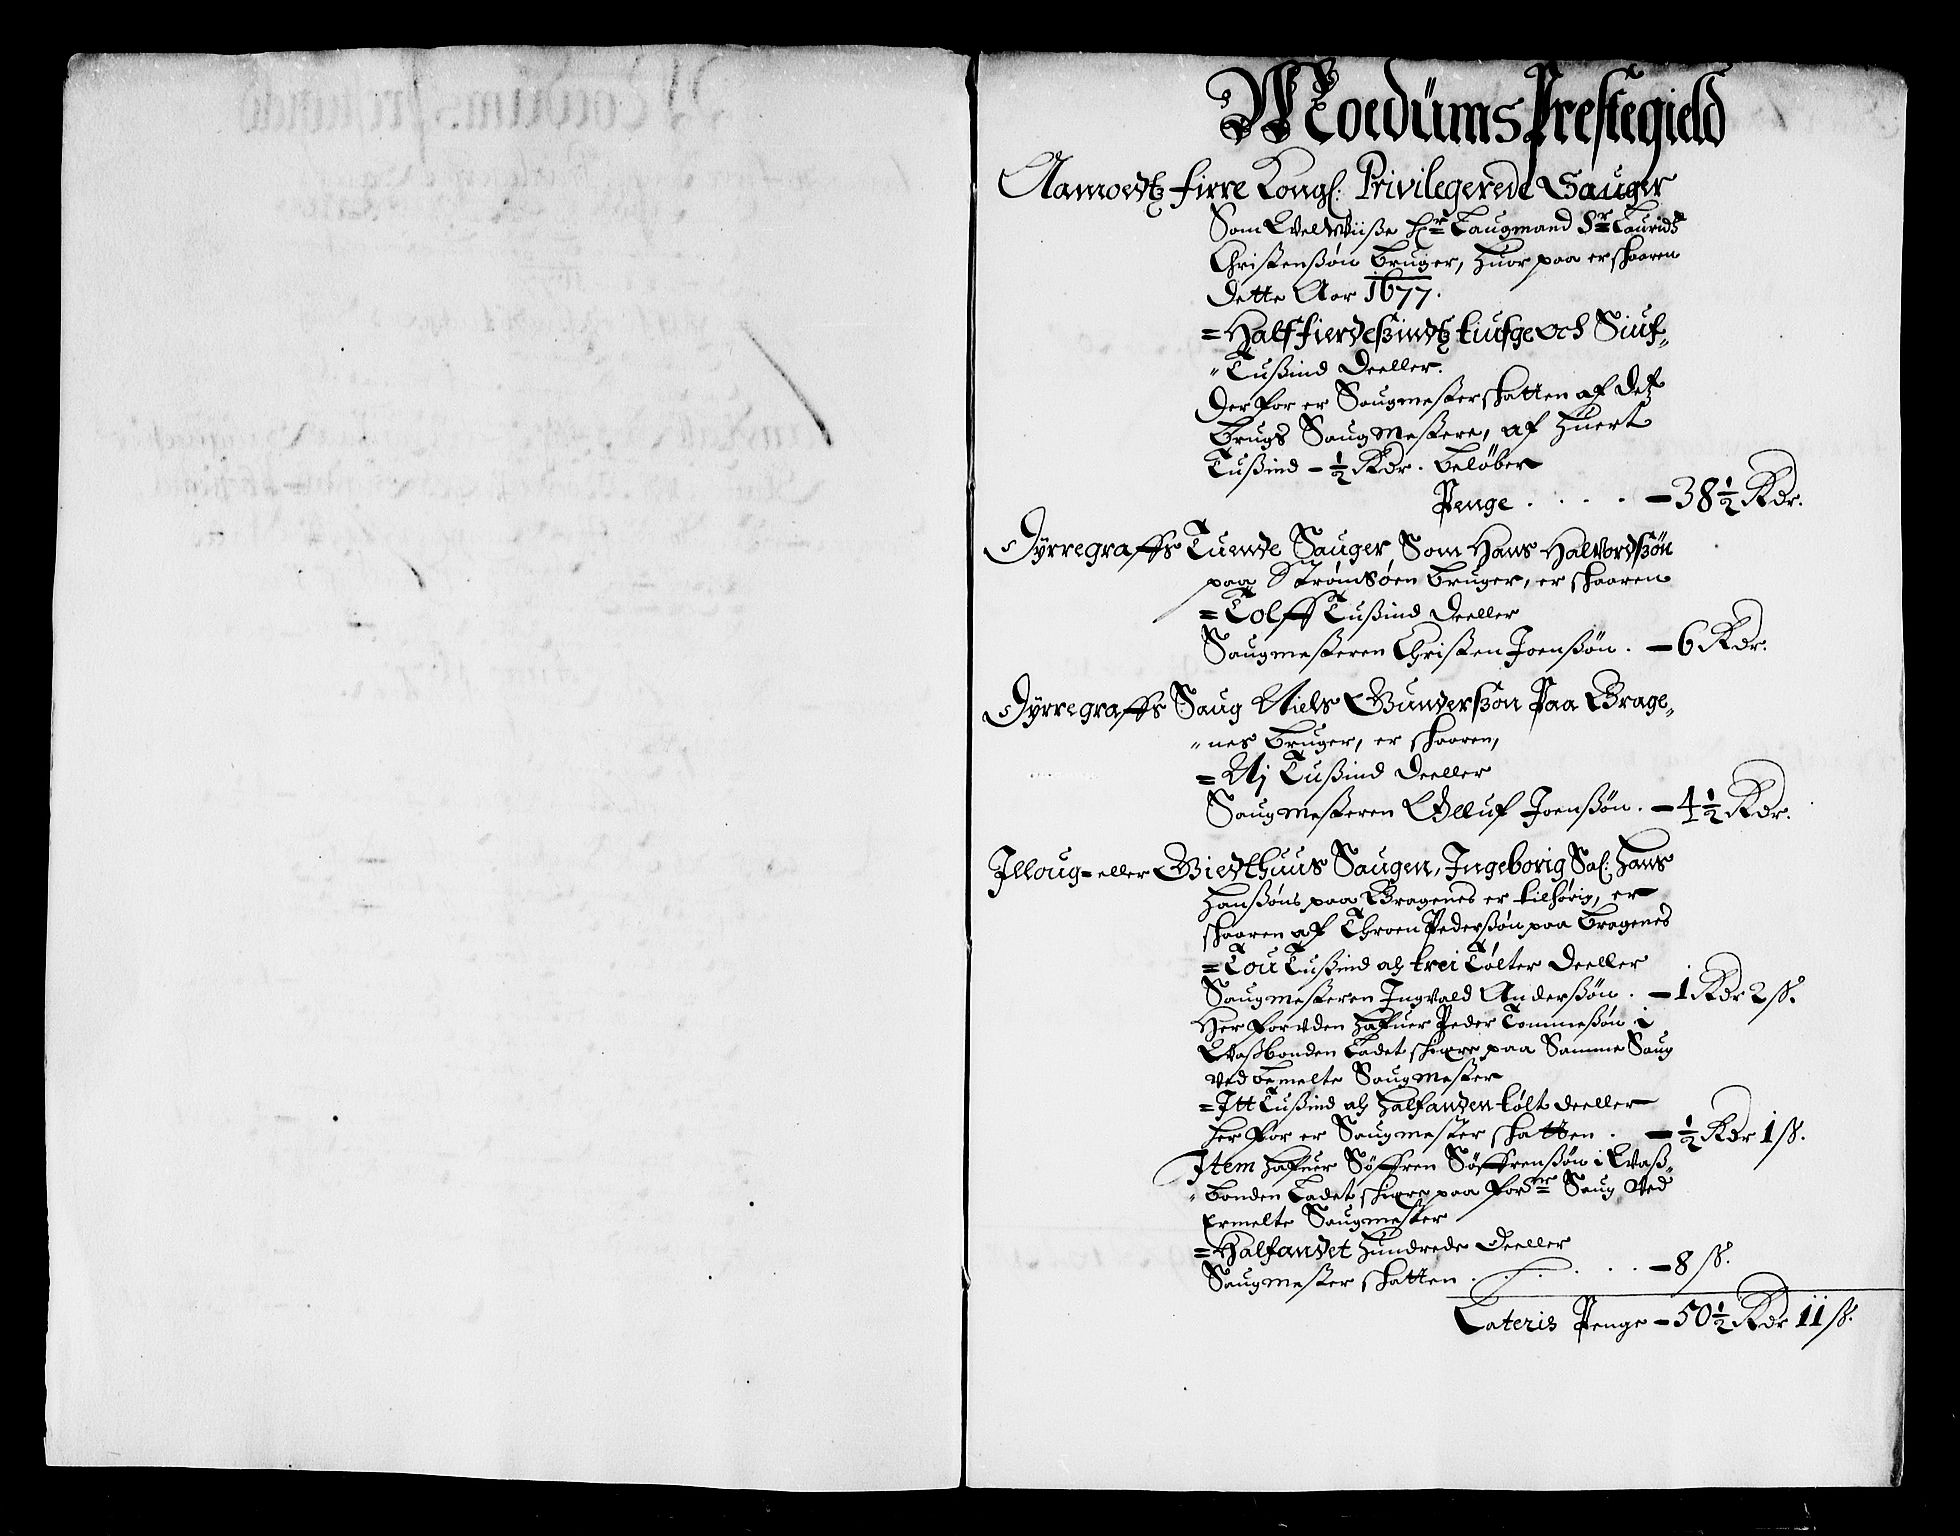 Moedums Prestegield
Aamoedtz firre Kongl: Privilegerede Sauger
Som Welwiiße Hr Laugmand Sr Lauridtz
Christensøn bruger, huor paa er skaaren
dette Aar 1677.
= Half fierdesindtz tiufge och Siuf-
"Tußind deeller.
Der for er Saugmesterskatten af detz
brugs Saugmestere, af huert
Tußind - ½ Rdr. beløber
Penge . . . . - 38½ Rdr.
Dÿrregraffs Tuende Sauger Som Hans Halvordsøn
paa Strømsøen bruger, er skaaren
= Tolff Tußind deeller
Saugmesteren Christen Joenßøn . - 6 Rdr.
Dÿrregraffs Saug Niels Gunderßøn Paa Brage-
"nes bruger, er skaaren,
= Nj Tußind deeller
Saugmesteren Olluf Joenßøn . - 4½ Rdr.
Illoug- eller Viedthuus Saugen, Ingeborig Sal: Hans
Hanßøns paa Bragenes er tilhørig, er
skaaren af Throen Pederßøn paa bragenes
= Tou Tußind och trei Tølter deeller
Saugmesteren Ingvald Anderßøn . - 1 Rdr 2 ß.
Her foruden hafuer Peder Tommeßøn i
Evaßbonden ladet skiære paa Samme Saug
ved bemelte Saugmester
= Itt Tußind och halfanden tølt deeller
her for er Saugmester skatten . - ½ Rdr 1 ß.
Item hafuer Søffren Søffrenßøn i Evaß-
"bonden ladet skiære paa forne Saug ved
ermelte Saugmester
= Halfandet hundrede deeller
Saugmester skatten . . . . . - 8 ß.
Lateris Penge - 50½ Rdr 11 ß.